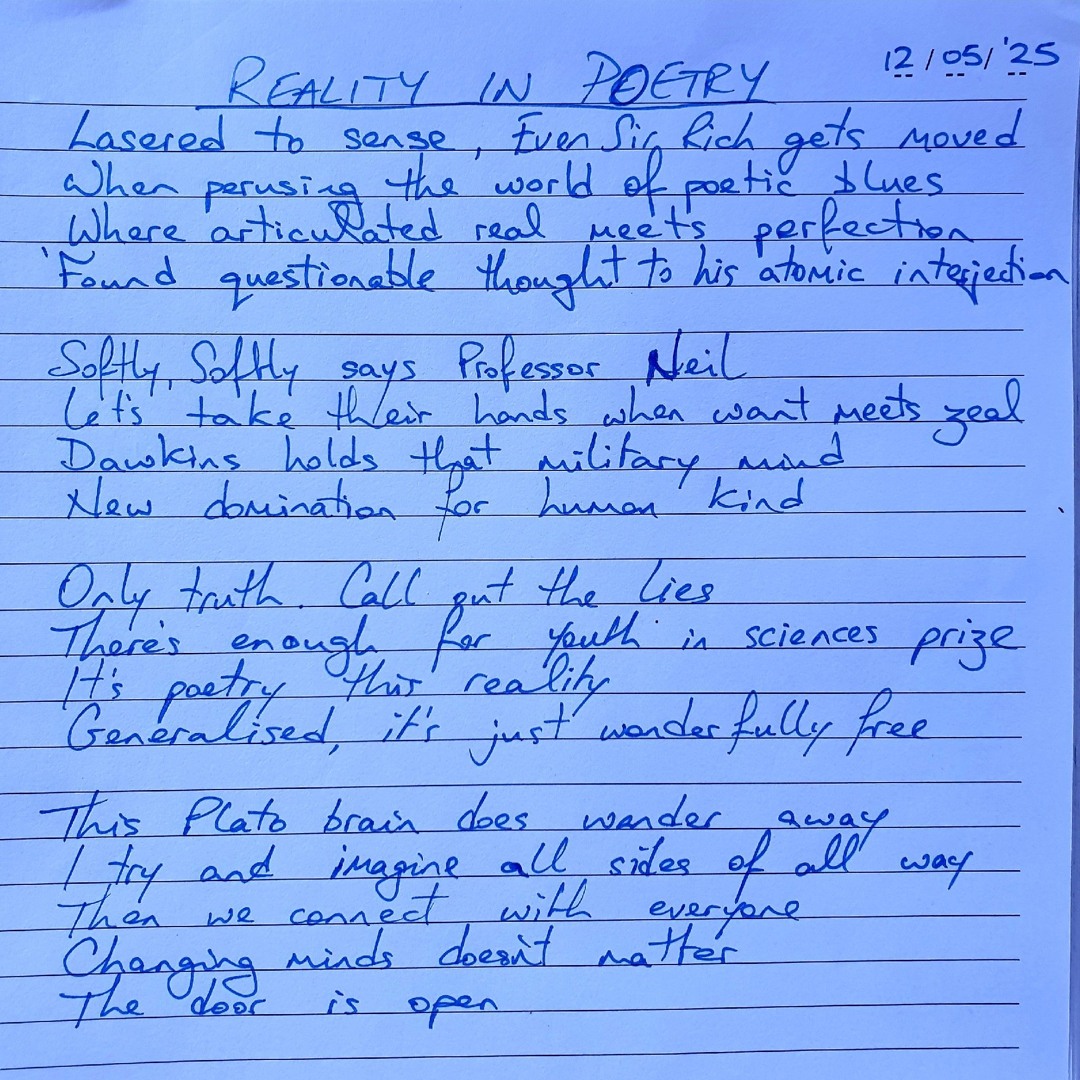 12/05/'25
REALITY IN POETRY
Lasered to sense, Even Sir Rich gets moved
When perusing the world of poetic blues
Where articulated real meets perfection
Found questionable thought to his atomic interjection
Softly, Softly says Professor Neil
Let's take their hands when want meets zeal
Dawkins holds that military mind
New domination for human kind
Only truth. Call out the lies
There's enough for youth in sciences prize
It's poetry this reality
Generalised, it's just wonderfully free
This Plato brain does wander away
I try and imagine all sides of all way
Then we connect with everyone
Changing minds doesn't matter
The door is open